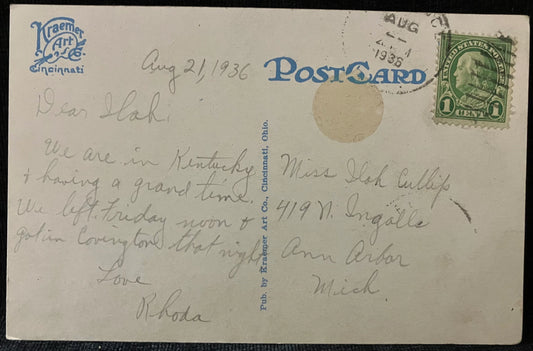 Kraemer
Art
Co.
Cincinnati
Aug 21, 1936
POST CARD
AUG
1936
UNITED STATES POSTAGE
1 CENT 1
Dear Ilah:
We are in Kentucky
& having a grand time.
We left Friday noon &
got in Covington that night
Love
Rhoda
Pub. by Kraemer Art Co., Cincinnati, Ohio.
Miss Ilah Cullip
419 N. Ingalls
Ann Arbor
Mich